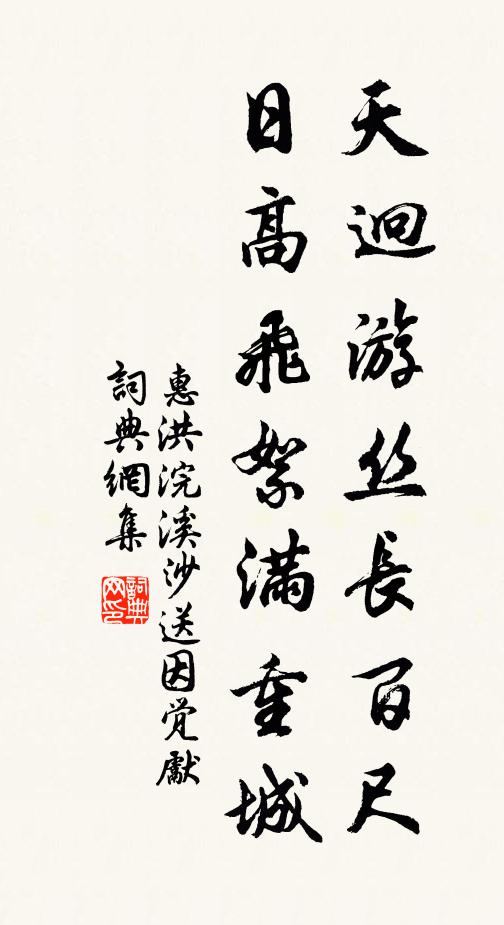 天迥游丝長百尺
日高飛絮滿重城
惠洪浣溪沙送因覚獻
詞典網集
詞典
网印